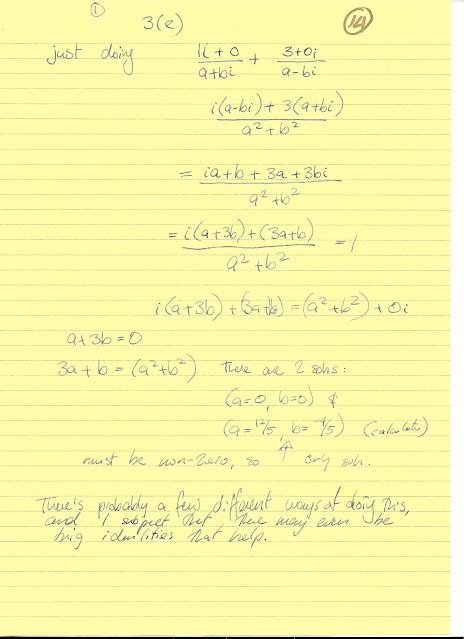 ①
3(e)
14
just doing (1i + 0)/(a+bi) + (3+0i)/(a-bi)
(i(a-bi) + 3(a+bi))/(a²+b²)
= (ia+b + 3a + 3bi)/(a²+b²)
= (i(a+3b) + (3a+b))/(a²+b²) = 1
i(a+3b) + (3a+b) = (a²+b²) + 0i
a+3b = 0
3a + b = (a²+b²) there are 2 solns:
(a=0, b=0) &
(a=12/5, b=-4/5) (calculator)
must be non-zero, so ↑ only soln.
There's probably a few different ways of doing this,
and I suspect that there may even be
trig identities that help.